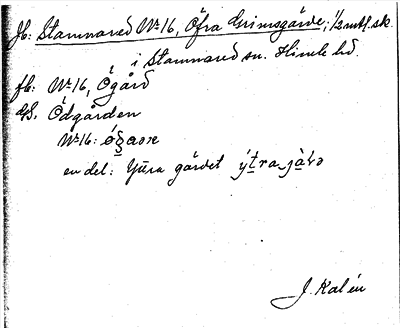 Jb: Stamnared No 16, Öfra Grimsgärde; 1/2 mtl. sk.
i Stamnared sn. Himle hd.
fb: No 16, Ögård
gS. Ödgården
No 16:
en del: Yttra gärdet
J. Kalén